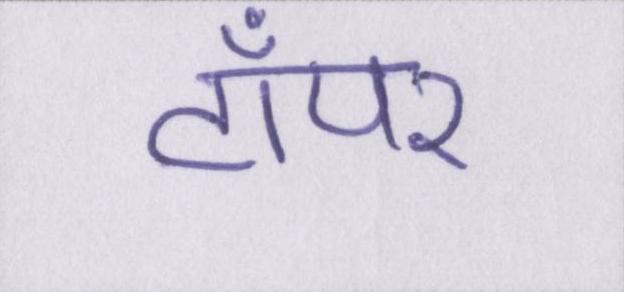 टाँपर